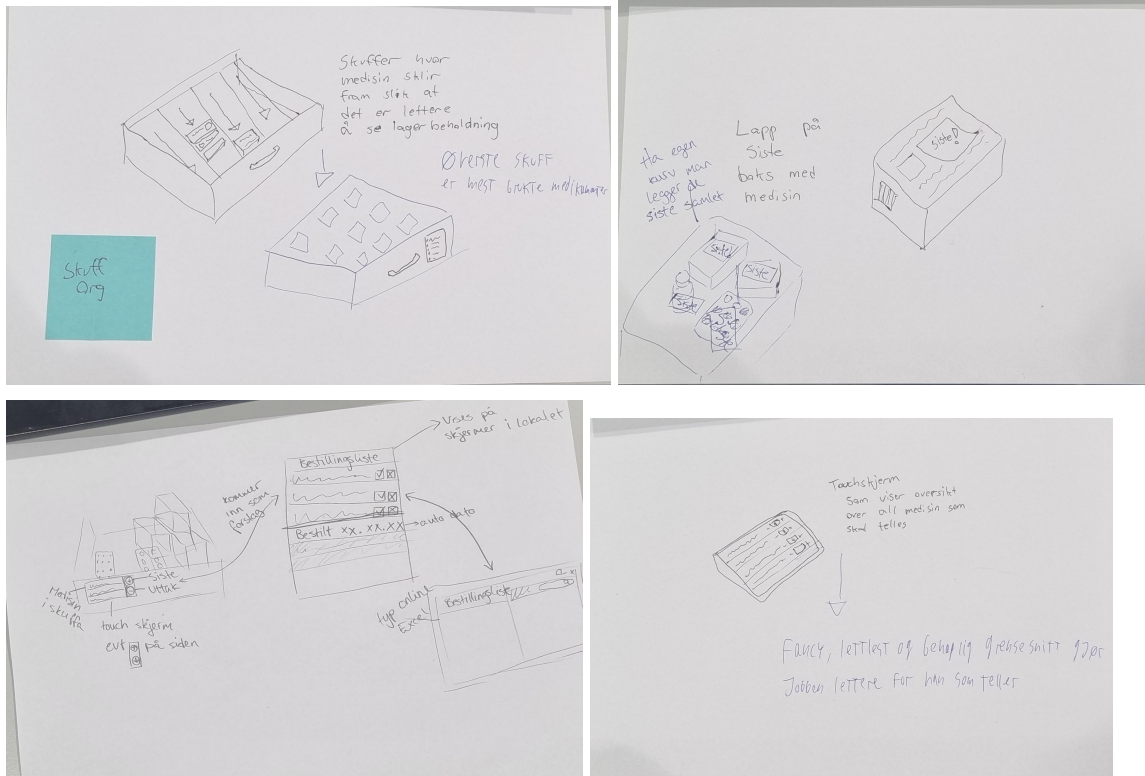 Skuffer hvor
medisin sklir
fram slik at
det er lettere
å se lagerbeholdning
Øverste skuff
er mest brukte medikamenter
Skuff
Org
Ha egen
kurv man
legger de
siste samlet
Lapp på
Siste
boks med
medisin
siste!
siste!
siste
siste
Vises på
skjermer i lokalet
Bestillingsliste
kommer
inn som
forslag
Bestilt xx.xx.xx
auto dato
Siste
Uttak
Medisin
i skuffa
touch skjerm
evt på siden
typ online
Excel
Bestillingsliste
Touchskjerm
som viser oversikt
over all medisin som
skal telles
Fancy, lettlest og behaglig grensesnitt gjør
Jobben lettere for han som teller